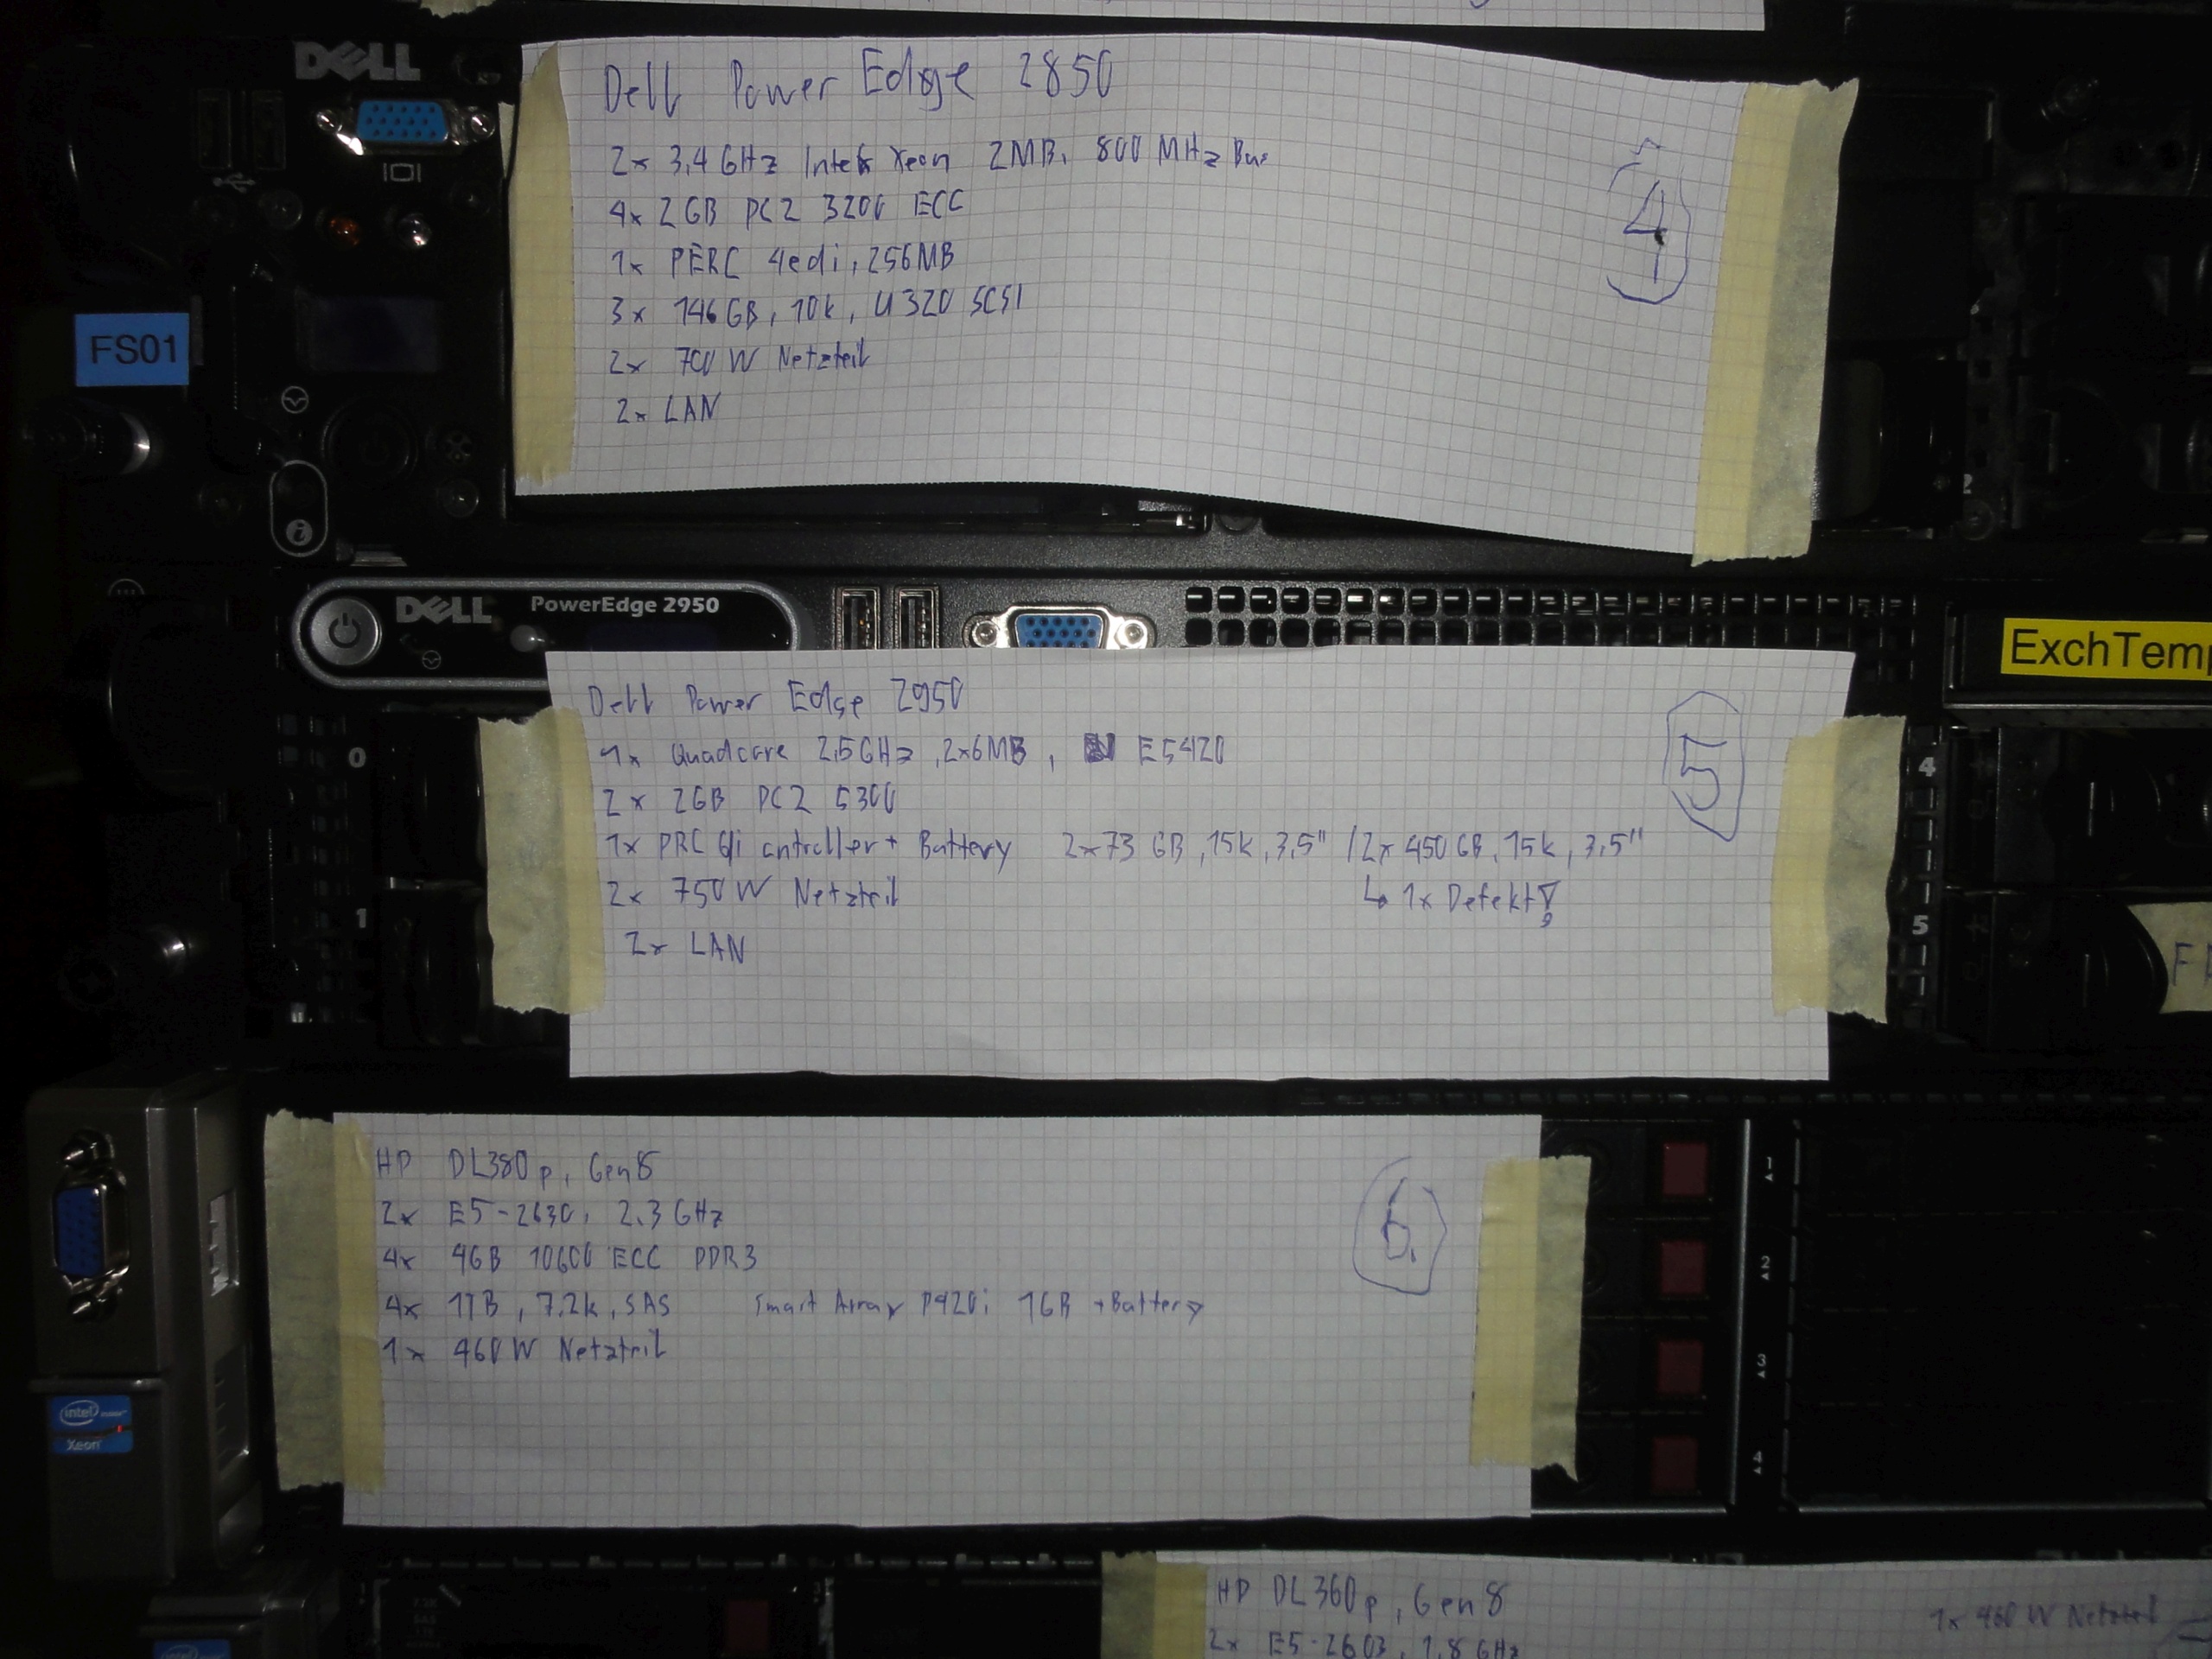 DELL
Dell Power Edge 2850
2x 3,4 GHz Intel Xeon 2MB, 800 MHz Bus
4x 2GB PC2 3200 ECC
1x PERC 4edi, 256MB
3x 146GB, 10k, U320 SCSI
2x 700W Netzteil
2x LAN
4
FS01
2
DELL PowerEdge 2950
ExchTemp
Dell Power Edge 2950
1x Quadcore 2,5GHz, 2x6MB, E5420
2x 2GB PC2 5300
1x PRC 6/i cntroller + Battery 2x73 GB, 15k, 3,5" / 2x 450GB, 15k, 3,5"
2x 750W Netzteil ↳ 1x Defekt!
2x LAN
5
0
1
4
5
HP DL380p, Gen8
2x E5-2630, 2.3GHz
4x 4GB 10600 ECC DDR3
4x 1TB, 7.2k, SAS Smart Array P420i 1GB +Battery
1x 460W Netzteil
6.
1
2
3
4
intel
Xeon
HP DL360p, Gen8
1x 460W Netzteil
2x E5-2603, 1.8GHz